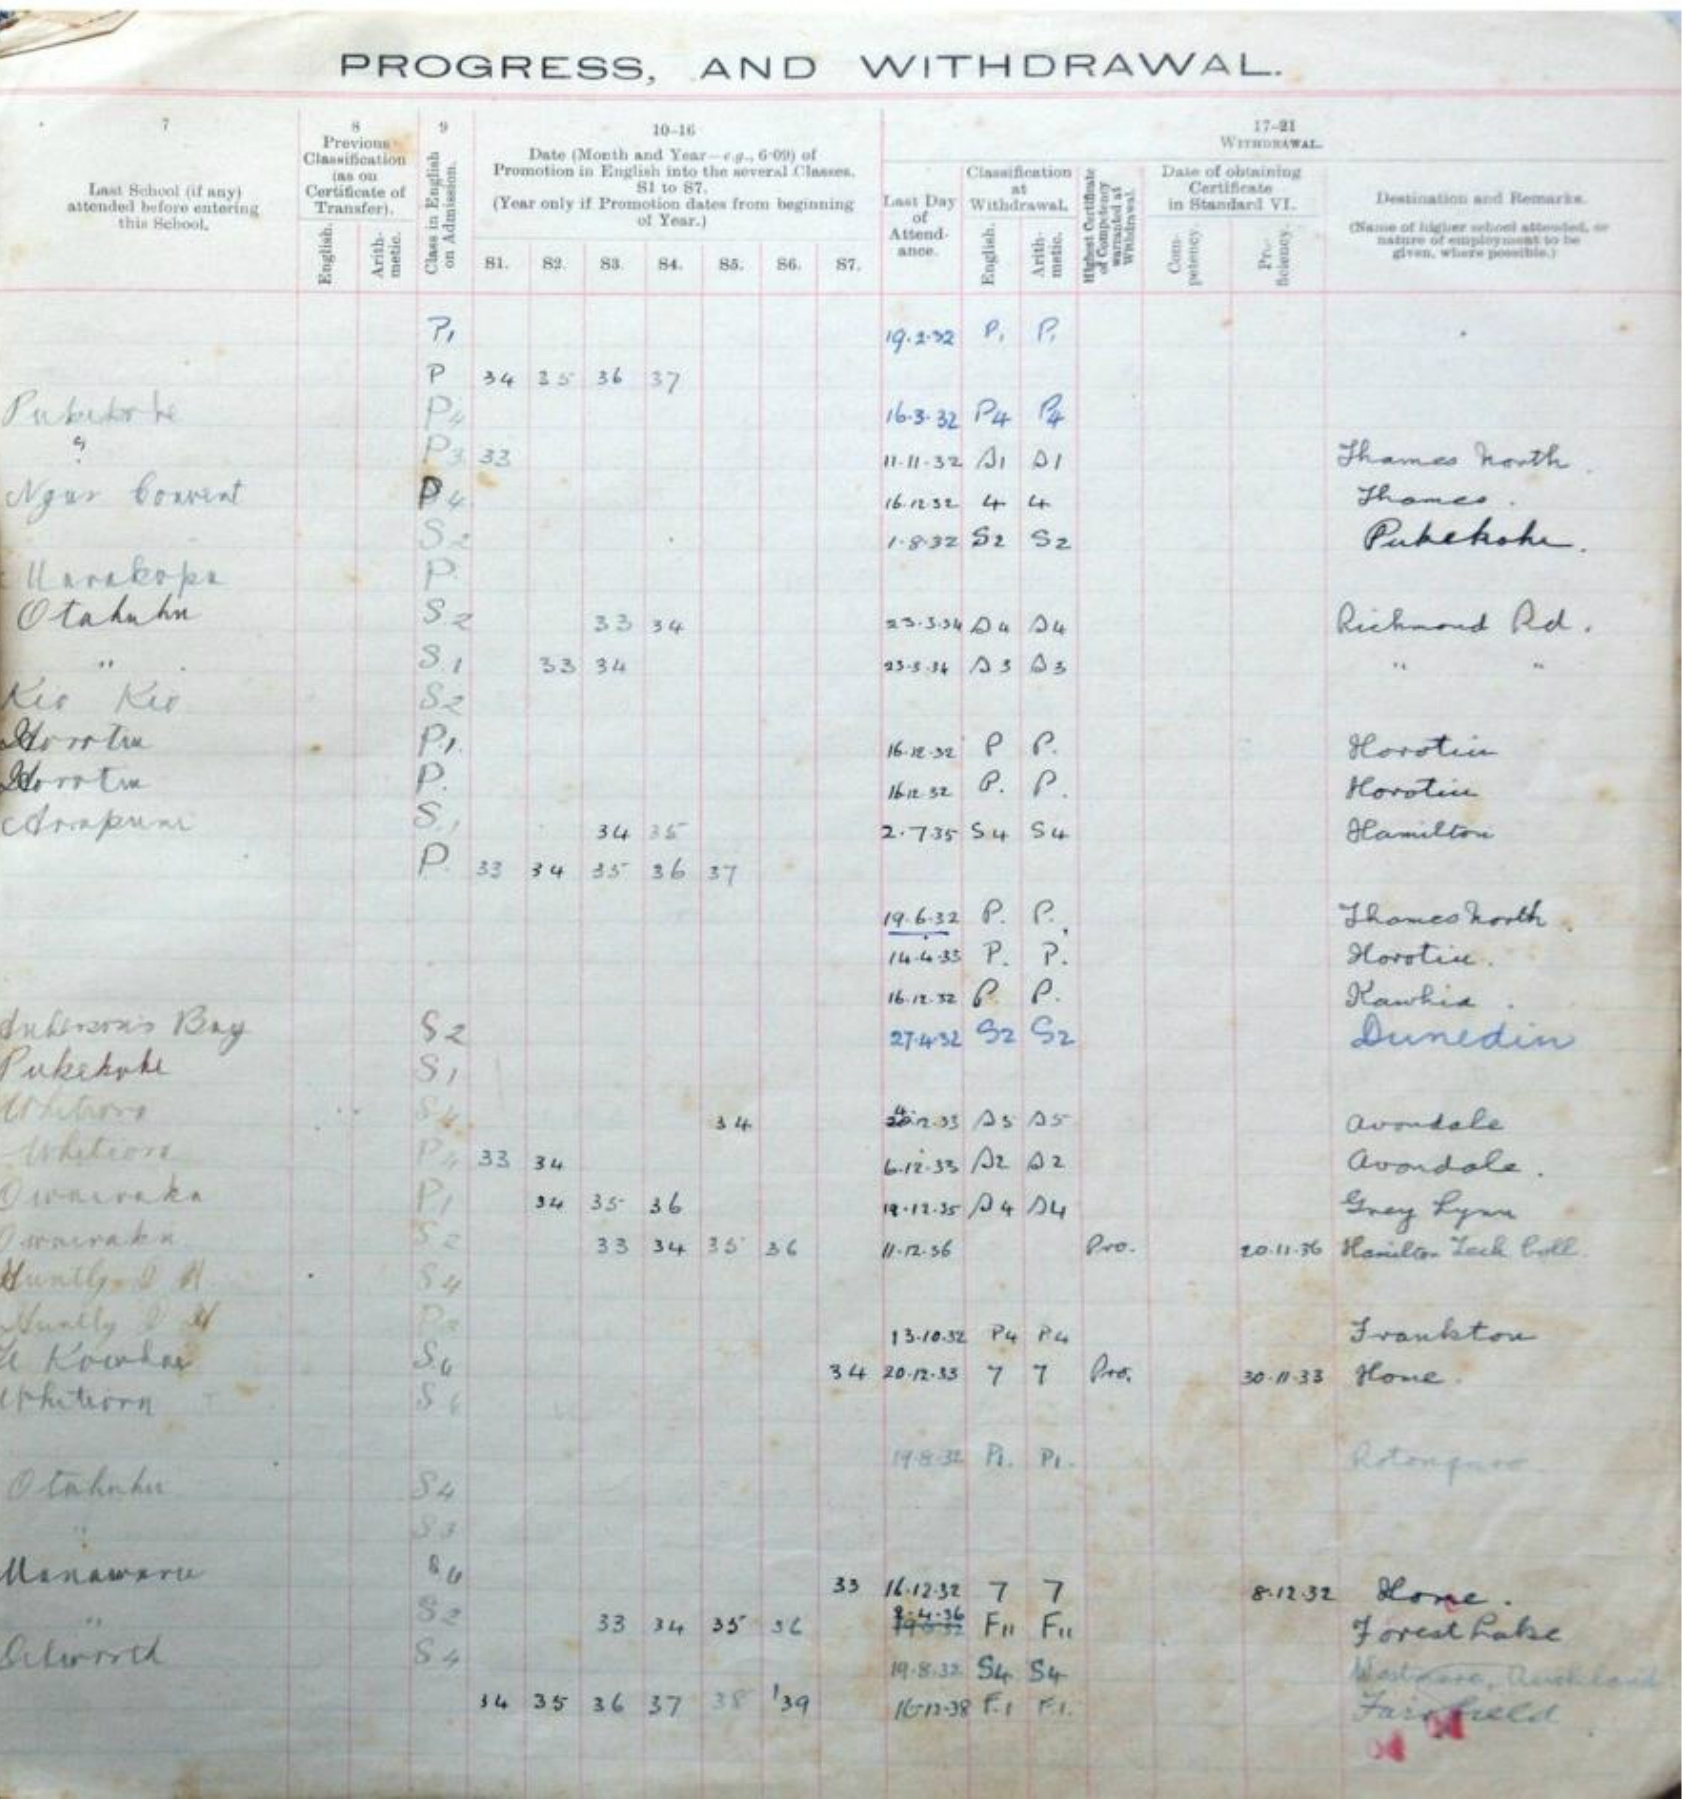 PROGRESS, AND WITHDRAWAL.
7
Last School (if any) attended before entering this School.
8
Previous Classification (as on Certificate of Transfer).
English.
Arithmetic.
9
Class in English on Admission.
10-16
Date (Month and Year—e.g., 6·09) of Promotion in English into the several Classes, S1 to S7.
(Year only if Promotion dates from beginning of Year.)
S1. S2. S3. S4. S5. S6. S7.
17-21
WITHDRAWAL.
Last Day of Attendance.
Classification at Withdrawal.
English.
Arithmetic.
Highest Certificate of Competency warranted at Withdrawal.
Date of obtaining Certificate in Standard VI.
Competency.
Proficiency.
Destination and Remarks.
(Name of higher school attended, or nature of employment to be given, where possible.)
P1 19.2.32 P1 P1
P 34 35 36 37
Pukekohe P4 16.3.32 P4 P4
" P3 33 11.11.32 S1 S1 Thames North.
Convent P4 16.12.32 4 4 Thames.
S2 1.8.32 S2 S2 Pukekohe.
Marakopa P.
Otahuhu S2 33 34 23.3.34 S4 S4 Richmond Rd.
" S.1 33 34 34 S3 S3 " "
Kio Kio S2
Horotiu P1. 16.12.32 P P. Horotiu
Horotiu P. 16.12.32 P. P. Horotiu
Arapuni S.1 34 35 2.7.35 S4 S4 Hamilton
P. 33 34 35 36 37
19.6.32 P. P. Thames North.
14.4.33 P. P. Horotiu.
16.12.32 P. P. Kawhia.
Bay S2 27.4.32 S2 S2 Dunedin
Pukekohe S1
Whitiora S4 34 12.33 S5 S5 Avondale
Whitiora P4 33 34 6.12.33 S2 S2 Avondale.
Owairaka P1 34 35 36 19.12.35 S4 S4 Grey Lynn
Owairaka S2 33 34 35 36 11.12.36 Pro. 20.11.36 Hamilton Tech Coll.
Huntly S4
Huntly 13.10.32 P4 P4 Frankton
Te Kowhai S6 34 20.12.33 7 7 Pro. 30.11.33 Home.
Whitiora S6
19.8.32 P1. P1. Rotongaro
Otahuhu S4
" S3
Manawaru S6 33 16.12.32 7 7 8.12.32 Home.
" S2 33 34 35 36 2.4.36 F11 F11 Forest Lake
S4 19.8.32 S4 S4 Westmere, Auckland
34 35 36 37 38 '39 16.12.38 F.1 F.1. Fairfield